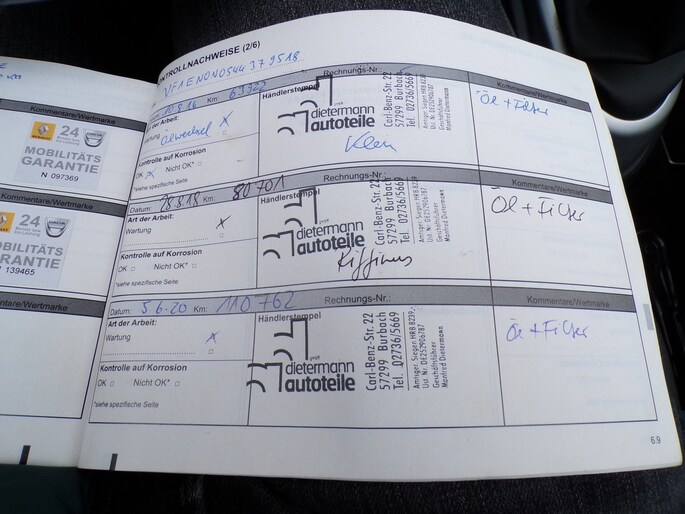 Kommentare/Wertmarke
24
MOBILITÄTS
GARANTIE
N 097369
Kommentare/Wertmarke
24
MOBILITÄTS
GARANTIE
139465
Kommentare/Wertmarke
KONTROLLNACHWEISE (2/6)
VF1EN0N0544379518
Km: 63922
Rechnungs-Nr.:
Kommentare/Wertmarke
Art der Arbeit:
Wartung
Ölwechsel X
Kontrolle auf Korrosion
OK X Nicht OK*
*siehe spezifische Seite
Händlerstempel
dietermann
autoteile
Carl-Benz-Str. 22
57299 Burbach
Tel. 02736/5669
Amtsger. Siegen HRB 8239
Ust. Nr. DE252906787
Geschäftsführer
Manfred Dietermann
Öl + Filter
Datum: 28.8.18 Km: 80 701
Kommentare/Wertmarke
Art der Arbeit:
Wartung X
Kontrolle auf Korrosion
OK Nicht OK*
*siehe spezifische Seite
Händlerstempel
dietermann
autoteile
Carl-Benz-Str. 22
57299 Burbach
Tel. 02736/5669
Amtsger. Siegen HRB 8239
Ust. Nr. DE252906787
Geschäftsführer
Manfred Dietermann
Öl + Filter
Datum: 5.6.20 Km: 110 762
Rechnungs-Nr.:
Kommentare/Wertmarke
Art der Arbeit:
Wartung X
Kontrolle auf Korrosion
OK Nicht OK*
*siehe spezifische Seite
Händlerstempel
dietermann
autoteile
Carl-Benz-Str. 22
57299 Burbach
Tel. 02736/5669
Amtsger. Siegen HRB 8239
Ust. Nr. DE252906787
Geschäftsführer
Manfred Dietermann
Öl + Filter
6.9